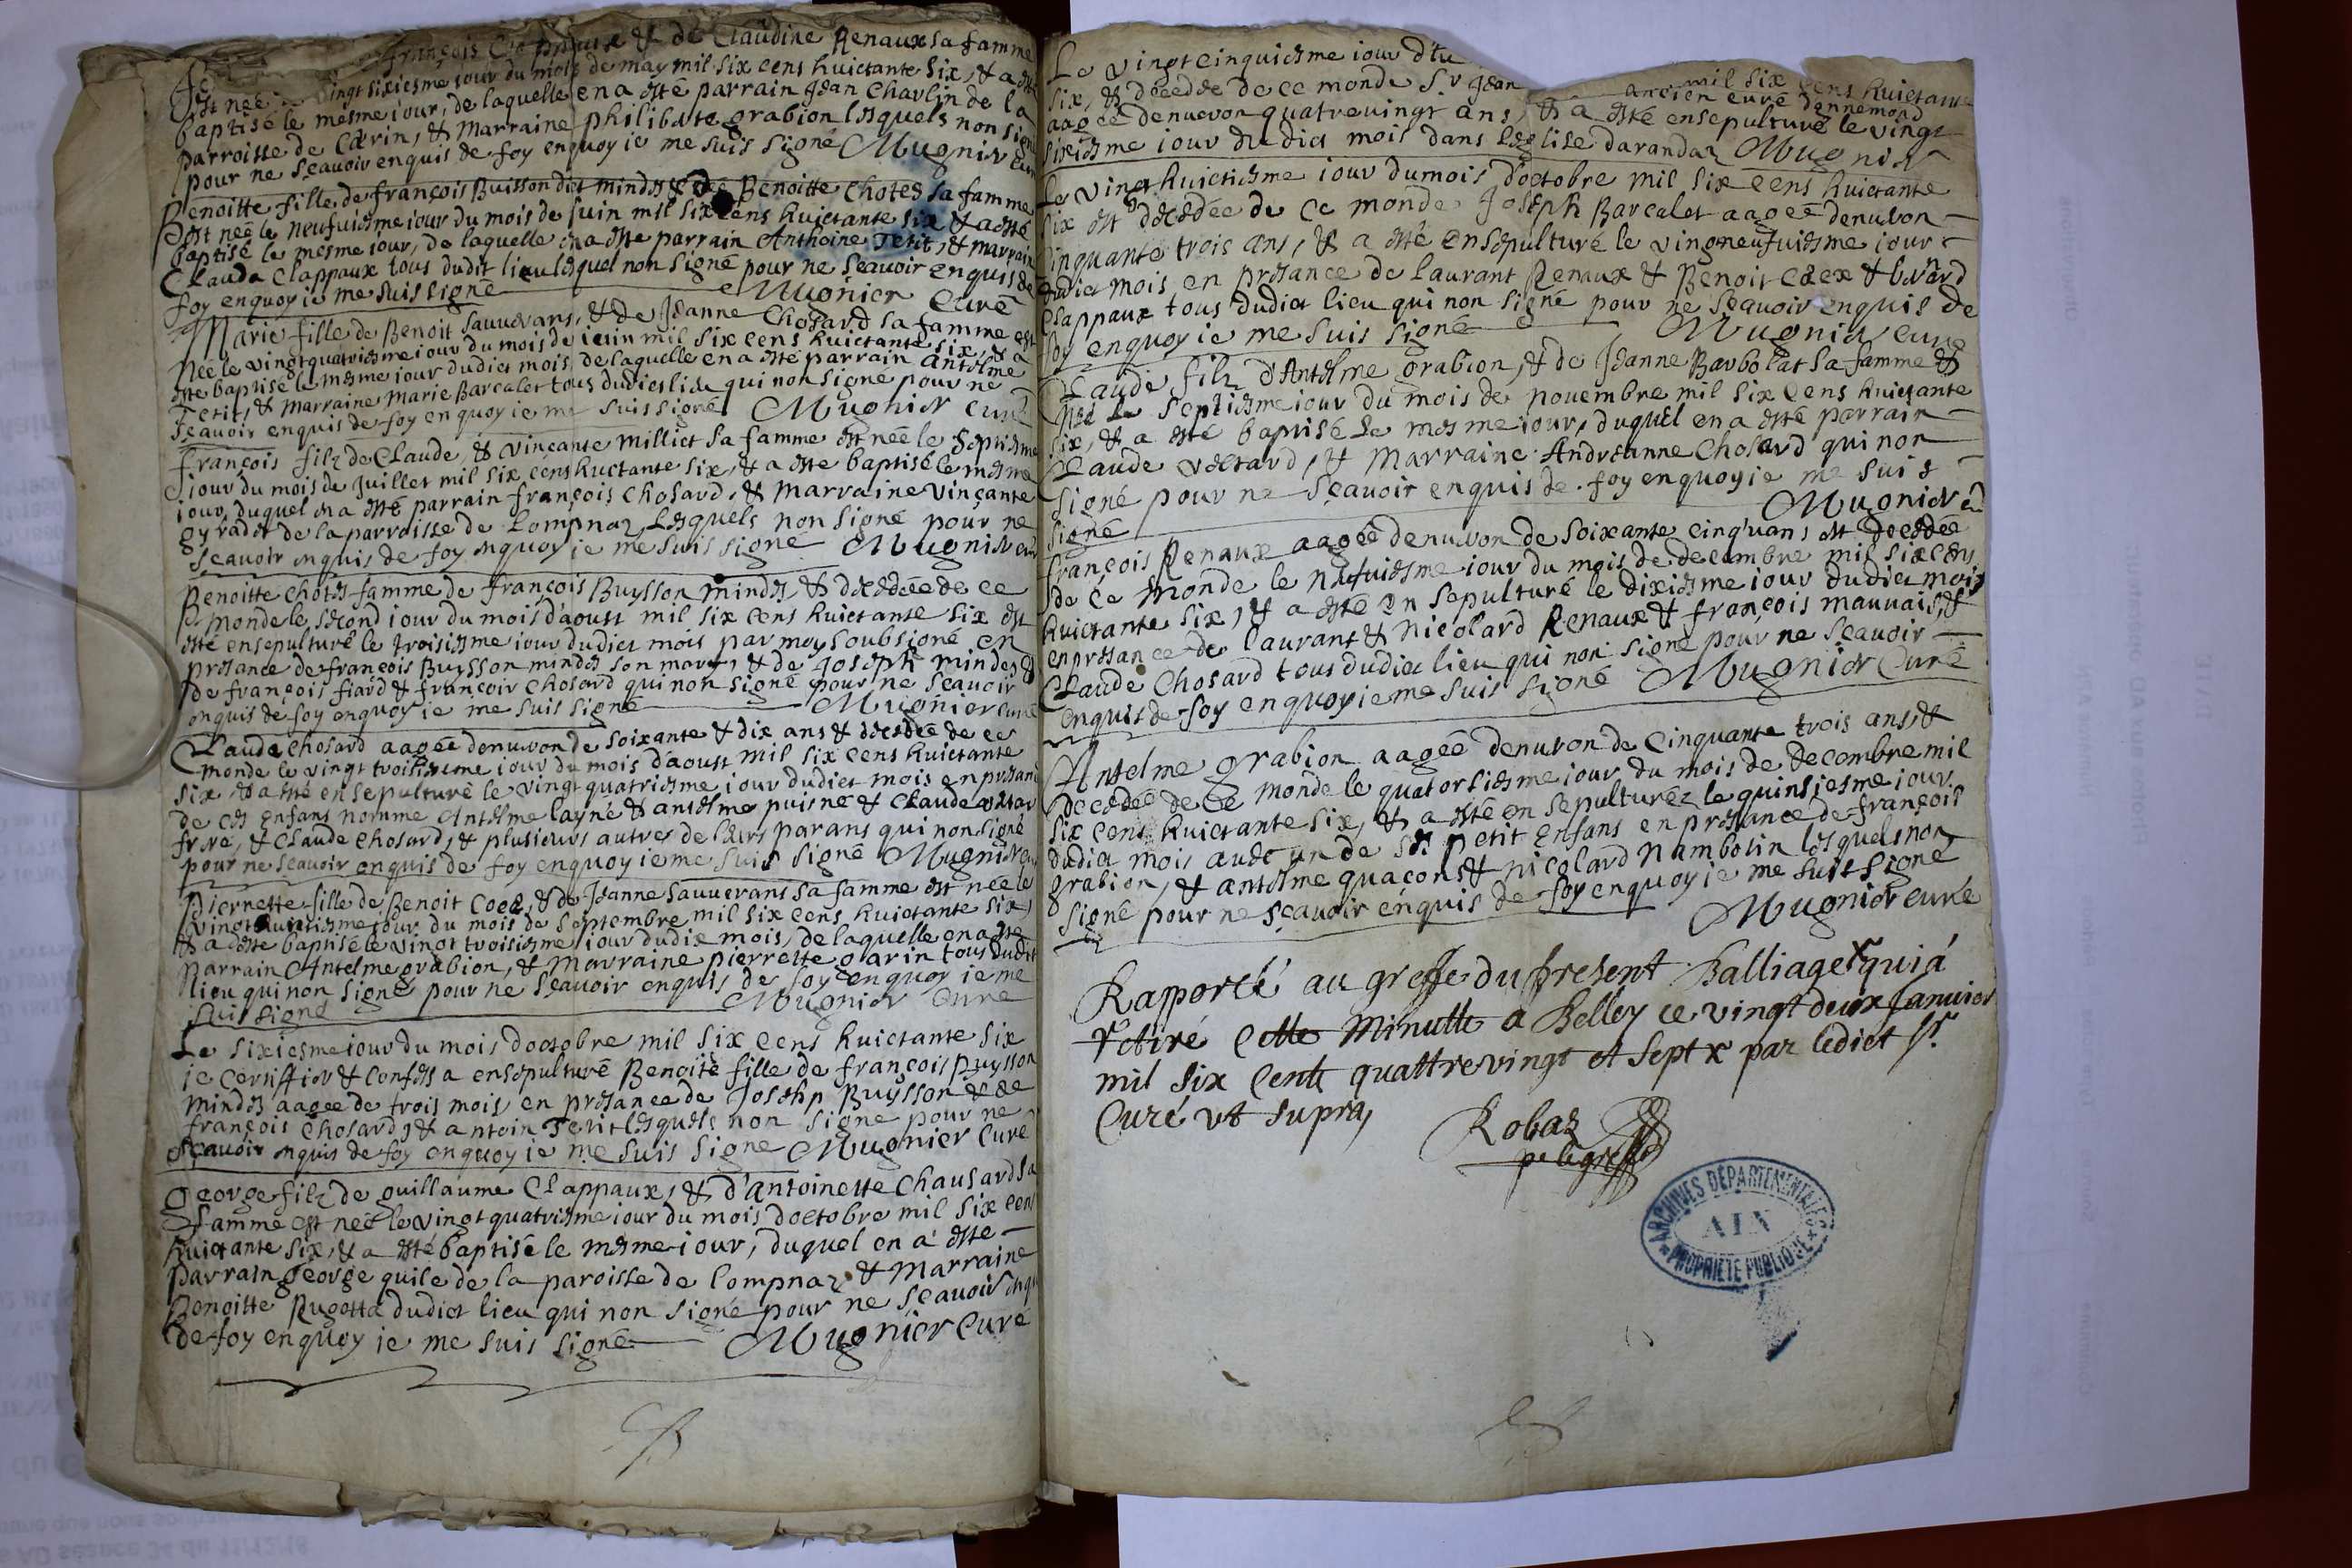 françois et de Claudine Renaux sa famme
est née vingt sixiesme iour du mois de may mil six cens huictante six, & a esté
baptisé le mesme iour, de laquelle en a esté parrain Jean Charlin de la
parroisse de & Marraine philibate grabion lesquels non signé
pour ne sçauoir enquis de foy enquoy ie me suis signé Mugnier curé
Benoitte fille de françois Buisson dict mindes & de Benoitte Chotes sa famme
est née le neufuiesme iour du mois de juin mil six cens huictante six & a esté
baptisé le mesme iour, de laquelle en a esté parrain Anthoine Tetit, & marraine
Clauda Clappaux tous dudit lieu lesquel non signé pour ne sçauoir enquis de
foy enquoy ie me suis signé Mugnier Curé
Marie fille de Benoit sauuerans, & de Jeanne Chosard sa famme est
née le vingtquatriesme iour du mois de iuin mil six cens huictante six, & a
esté baptisé le mesme iour dudict mois, de laquelle en a esté parrain antelme
Tetit, & marraine Marie Barcalet tous dudict lieu qui non signé pour ne
sçauoir enquis de foy enquoy ie me suis signé Mugnier curé
françois filz de Claude, & vinçante milliet sa famme est née le septiesme
iour du mois de Juillet mil six cens huictante six, & a esté baptisé le mesme
iour, duquel en a esté parrain françois Chosard, & marraine vinçante
gyradet de la parroisse de Lompnaz, lesquels non signé pour ne
sçauoir enquis de foy enquoy ie me suis signé Mugnier curé
Benoitte chotes famme de françois Buysson mindes, & décédée de ce
monde le second iour du mois d'aoust mil six cens huictante six est
esté ensepulturé le troisiesme iour dudict mois par moy soubsigné en
presance de françois Buysson mindes son mary, & de Joseph mindes &
de françois fiard & françois chosard qui non signé pour ne sçauoir
enquis de foy enquoy ie me suis signé Mugnier curé
Claude chosard aagée denuron de soixante & dix ans & décédée de ce
monde le vingt troisiesme iour du mois d'aoust mil six cens huictante
six, & a esté ensepulturé le vingt quatriesme iour dudict mois en presance
de ces enfans nomme Antelme layné & antelme puisné & Claude
frere, & Claude Chosard, & plusieurs autres de leurs parans qui non signé
pour ne sçauoir enquis de foy enquoy ie me suis signé Mugnier curé
Pierrette fille de Benoit Coex, & de Jeanne Sauuerans sa famme est née le
vingt iour du mois de Septembre mil six cens huictante six,
& a esté baptisé le vingt troisiesme iour dudix mois, de laquelle en a esté
parrain Antelme grabion, & marraine pierrette garin tous dudict
lieu qui non signé pour ne sçauoir enquis de foy enquoy ie me
suis signé Mugnier Curé
Le sixiesme iour du mois doctobre mil six cens huictante six
ie certiffier & confes a ensepulturé Benoite fille de françois Buysson
mindes aagée de trois mois, en presance de Josehp Buysson & de
françois Chosard, & antoin Tetit lesquels non signé pour ne
sçauoir enquis de foy enquoy ie me suis signé Mugnier Curé
George filz de guillaume Clappaux, & d'antoinette Chausard sa
famme est néé le vingt quatriesme iour du mois doctobre mil six cens
huictante six, & a esté baptisé le mesme iour, duquel en a esté
parrain george quile de la paroisse de lompnaz & Marraine
Benoitte Rugetta dudict lieu qui non signé pour ne sçauoir enquis
de foy enquoy ie me suis signé Mugnier Curé
Le vingt cinquiesme iour mil six cens huictante
six, & décédée de ce monde Sr Jean ancien curé dennemond
aagée denueron quatreuingt ans, & a esté ensepulturé le vingt
sixiesme iour dudict mois dans leglise darandaz Mugnier
Le vingt huictiesme iour du mois doctobre mil six cens huictante
six est décédée de ce monde Joseph Barcalet aagée denuron
cinquante trois ans, & a esté ensepulturé le vingneufuiesme iour
dudict mois en presance de laurant Renaux & Benoit Coex & bernard
Clappaux tous dudict lieu qui non signé pour ne sçauoir enquis de
foy enquoy ie me suis signé Mugnier curé
Claude filz d'Antelme grabion, & de Jeanne Barbolat sa famme &
née le septiesme iour du mois de nouembre mil six cens huictante
six, & a esté baptisé le mesme iour, duquel en a esté parrain
Claude & Marraine Andréanne Chosard qui non
signé pour ne sçauoir enquis de foy enquoy ie me suis
signé Mugnier
françois Renaux aagée denuron de soixante cinq'uans est décédée
de ce monde le neufuiesme iour du mois de decembre mil six cens
huictante six, & a esté en sepulturé le dixiesme iour dudict mois
en presance de laurant & nicolard Renaux & françois mauuais, &
Claude Chosard tous dudict lieu qui non signé pour ne sçauoir
enquis de foy enquoy ie me suis signé Mugnier Curé
Antelme grabion aagéé denuron de cinquante trois ans, &
décédée de ce monde le quatorsiesme iour du mois de decembre mil
six cens huictante six, & a esté en sepulturéz le quinsiesme iour
dudict mois audc un de ses petit enfans en presance de françois
grabion, & antelme quacon & nicolard nambotin lesquels non
signé pour ne sçauoir enquis de foy enquoy ie me suis signé
Mugnier curé
Rapporté au greffe du present Balliage qui a
retiré cette minutte a Belley ce vingt deux Januier
mil six cents quattrevingt et sept par ledict Sr.
Curé vt supra,
Robaz
ARCHIVES DÉPARTEMENTALES
AIN
PROPRIÉTÉ PUBLIQUE